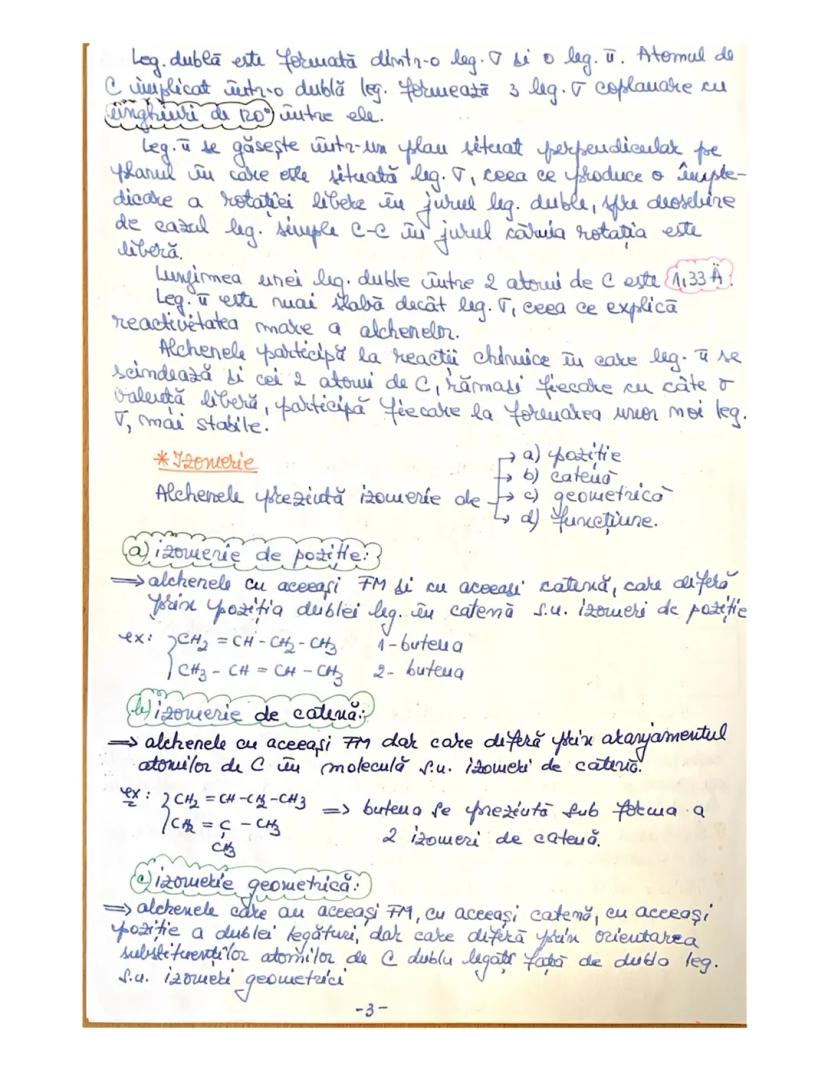 Leg. dublă este formată dintr-o leg. σ și o leg. π. Atomul de
C implicat într-o dublă leg. formează 3 leg. σ coplanare cu
unghiuri de 120° între ele.
Leg. π se găsește într-un plan situat perpendicular pe
planul în care este situată leg. σ, ceea ce produce o împie-
dicare a rotației libere în jurul leg. duble, spre deosebire
de cazul leg. simple C-C în jurul căruia rotația este
liberă.
Lungimea unei leg. duble între 2 atomi de C este 1,33 Å.
Leg. π este mai slabă decât leg. σ, ceea ce explică
reactivitatea mare a alchenelor.
Alchenele participă la reacții chimice în care leg. π se
scindează și cei 2 atomi de C, rămași fiecare cu câte o
valență liberă, participă fiecare la formarea unor noi leg.
σ, mai stabile.
*Izomerie
Alchenele prezintă izomerie de
→ a) poziție
→ b) catenă
→ c) geometrică
→ d) funcțiune.
a) izomerie de poziție:
⇒ alchenele cu aceeași FM și cu aceeași catenă, care diferă
prin poziția dublei leg. în catenă s.n. izomeri de poziție
ex: CH2 = CH - CH2 - CH3 1-butena
CH3 - CH = CH - CH3 2- butena
b) izomerie de catenă:
⇒ alchenele cu aceeași FM dar care diferă prin aranjamentul
atomilor de C în moleculă s.n. izomeri de catenă.
ex: CH2 = CH - CH2 - CH3 ⇒ butena se prezintă sub forma a
CH2 = C - CH3 2 izomeri de catenă.
CH3
c) izomerie geometrică:
⇒ alchenele care au aceeași FM, cu aceeași catenă, cu aceeași
poziție a dublei legături, dar care diferă prin orientarea
substituenților atomilor de C dublu legați față de dubla leg.
s.n. izomeri geometrici
-3-